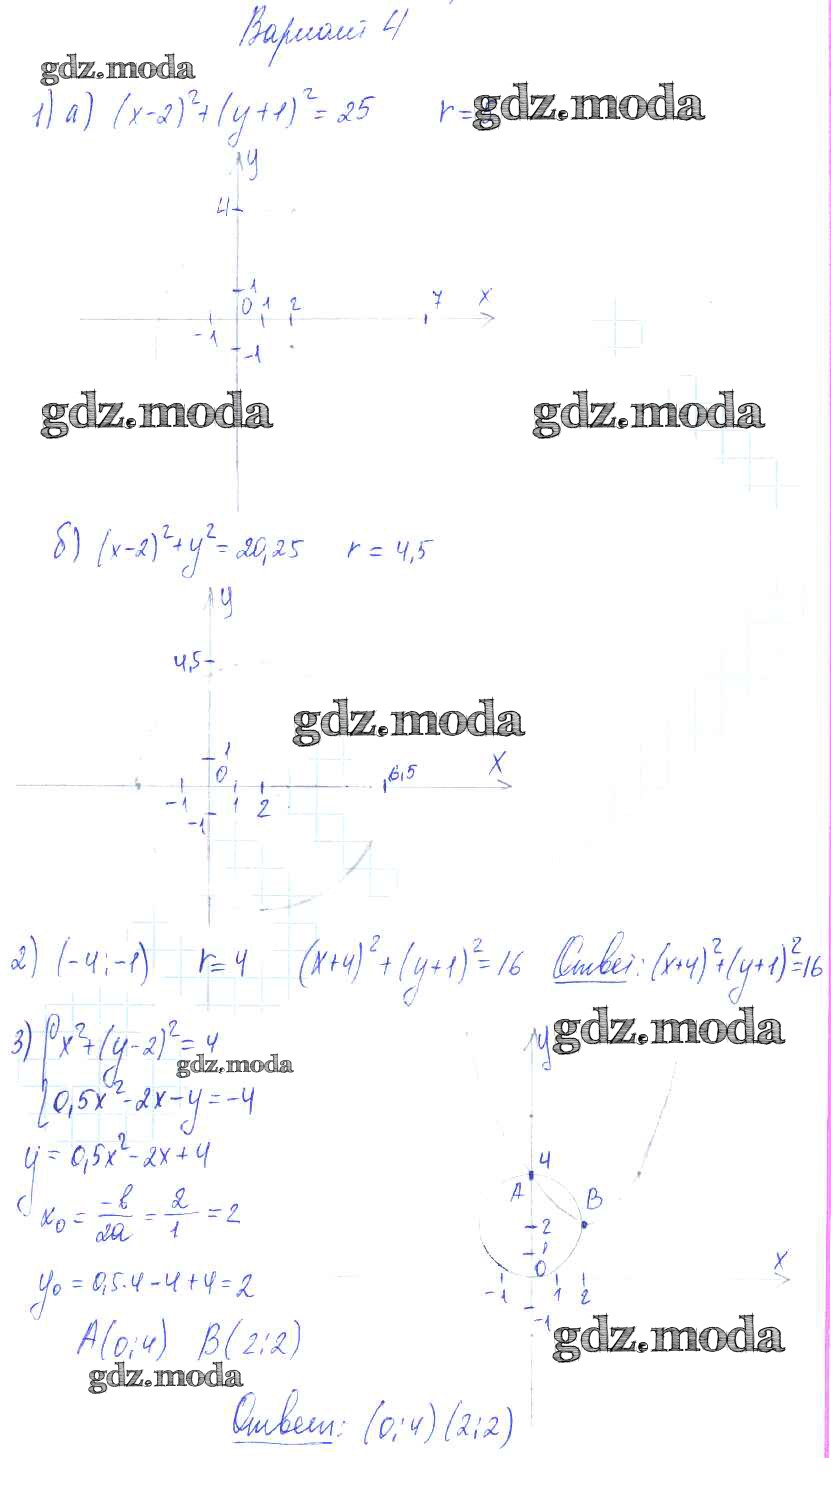 Вариант 4
gdz.moda
1) а) (x-2)²+(y+1)²=25 r= gdz.moda
y
4
1
0 1 2 7 x
-1
-1
gdz.moda gdz.moda
б) (x-2)²+y²=20,25 r=4,5
y
4,5
gdz.moda
1
0 6,5 x
-1 1 2
-1
2) (-4;-1) r=4 (x+4)²+(y+1)²=16 Ответ: (x+4)²+(y+1)²=16
3) { x²+(y-2)²=4
gdz.moda
0,5x²-2x-y=-4
y=0,5x²-2x+4
x₀ = -b/2a = 2/1 = 2
y₀ = 0,5·4-4+4=2
A(0;4) B(2;2)
gdz.moda
y gdz.moda
4
A B
2
1
0 x
-1 1 2
-1
gdz.moda
Ответ: (0;4) (2;2)